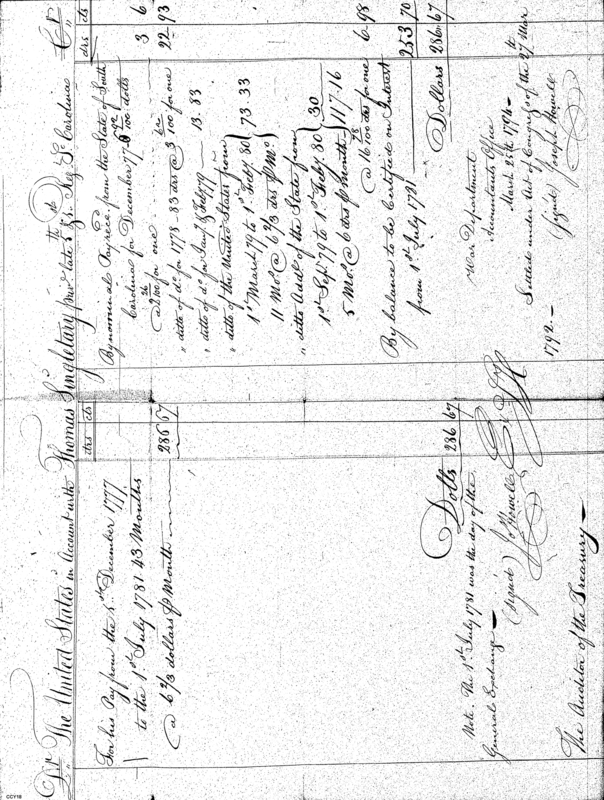 Dr. The United States in Account with Thomas Singletary priv: late 5th S. C. Regt. So. Carolina Cr.
drs cts
For his Pay from the 1st December 1777
to the 1st July 1781. 43 Months
@ 6 2/3 dollars P Month 286 67
Dolls 286 67
Note. The 1st July 1781 was the day of the
General Exchange
(signed) Jos Howell
The Auditor of the Treasury
drs cts
By nominal Pay rec'd from the State of South
Carolina for December 77 /100 dolls
@ /100 for one 3 6
" ditto of do. for 1778 - 83 drs @ 3 /100 for one 22 93
" ditto of do. for Jany & Feby 79 13.83
" ditto of the United States from
1st March 79 to 1st Feby. 80 } 73 33
11 Mos @ 6 2/3 drs P Mo
" ditto Addl of the State from
1st Sept 79 to 1st Feby. 80 } 30
5 Mos. @ 6 drs P Month 117.16
@ 16 78/100 drs for one 6.98
By balance to be Certified on Interest
from 1st July 1781 253.70
Dollars 286.67
War Department
Accountants Office
March 25th 1794
Settled under Act of Congress of the 27 Mar
1792.
(signed) Joseph Howell
CCY18